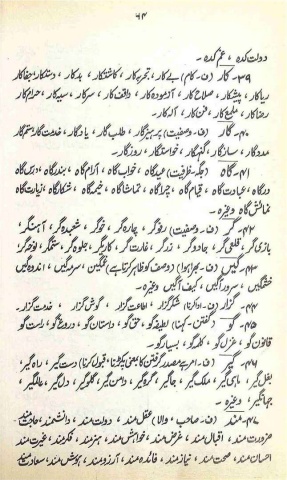 ۶۴
دولت کدہ، غم کدہ۔
۳۹۔ کار (ف۔ کام) بے کار، تجربہ کار، کاشتکار، بدکار، دستکار، جفاکار
ریاکار، پیشکار، صلاح کار، آزمودہ کار، واقف کار، سرکار، سیہ کار، حرام کار
رضا کار، ملمع کار، فن کار، آلہ کار۔
۴۰۔ گار (ف۔ وصفیت) پرہیزگار، طلب گار، یادگار، خدمت گار، ستم گار
مددگار، سازگار، گنہگار، خواستگار، روزگار۔
۴۱۔ گاہ (جگہ۔ ظرفیت) عیدگاہ، خواب گاہ، آرام گاہ، بندرگاہ، درس گاہ
درگاہ، عبادت گاہ، قیام گاہ، چراگاہ، تماشا گاہ، خیمہ گاہ، شکار گاہ، زیارت گاہ
نمائش گاہ وغیرہ۔
۴۲۔ گر (ف۔ وصفیت) رفوگر، چارہ گر، خوگر، شعبدہ گر، آہنگر،
بازی گر، قلعی گر، جادوگر، زرگر، غارت گر، کاریگر، جلوہ گر، ستمگر، نوحہ گر
۴۳۔ گیں (ف۔ بھرا ہوا) (وصف کو ظاہر کرتا ہے) غمگین، سرمگیں، اندوہ گیں
خشمگیں، سرور آگیں، کیف آگیں وغیرہ۔
۴۴۔ گزار (ف۔ ادا کرنا) شکر گزار، اطاعت گزار، گوش گزار، خدمت گزار۔
۴۵۔ گو (گفتن۔ کہنا) لطیفہ گو، حق گو، داستان گو، دروغ گو، راست گو
قانون گو، غزل گو، کلمہ گو، بسیار گو۔
۴۶۔ گیر (ف۔ امر ہے مصدر گرفتن کا بمعنی پکڑنا، قبول کرنا) دست گیر، راہ گیر،
بغل گیر، ماہی گیر، ملک گیر، جاگیر، گرہ گیر، دامن گیر، گلو گیر، دل گیر، عالمگیر،
جہانگیر، وغیرہ۔
۴۷۔ مند (ف۔ صاحب، والا) عقل مند، دولت مند، دانشمند، حاجتمند،
ضرورت مند، اقبال مند، غرض مند، خواہش مند، ہنر مند، فکر مند، غیرت مند
احسان مند، صحت مند، نیاز مند، فائدہ مند، آرزو مند، ہوش مند، سعادت مند